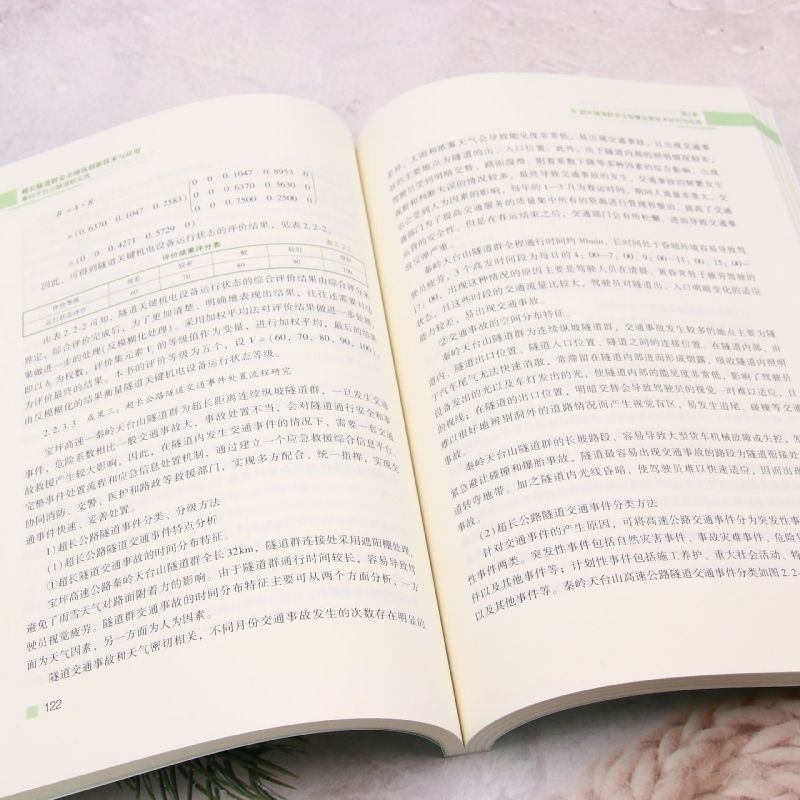 超长隧道群安全绿色创新技术与应用
秦岭天台山隧道群实践
B = A · R
= (0.6370 0.1047 0.2583)
0 0 0.1047 0.8953 0
0 0 0.6370 0.3630 0
0 0 0.7500 0.2500 0
= (0 0 0.4271 0.5729 0)
因此，可得到隧道关键机电设备运行状态的评价结果，见表2.2-2。
评价结果评分表 表2.2-2
评价等级 很差 较差 一般 较好 很好
运行状态评价 60 70 80 90 100
由表2.2-2可知，隧道关键机电设备运行状态的综合评价结果由综合评分来
界定，综合评价完成后，为了更加清楚、明确地表现出结果，往往还需要对结
果做进一步的处理(反模糊化处理)。采用加权平均法对评价结果做进一步处理，
即以b 为权数，评价集元素V 的等级值作为变量，进行加权平均，最后的结果
为评价最终的结果。本书的评价等级为五个，设V = (60，70，80，90，100)，
由反模糊化的结果衡量隧道关键机电设备运行状态等级。
2.2.3.3 成果三：超长公路隧道交通事件处置流程研究
宝坪高速—秦岭天台山隧道群为超长距离连续纵坡隧道群，一旦发生交通
事件，危险系数相比一般交通事故大，事故处置不当，会对隧道通行安全和事
故救援产生较大影响，因此，在隧道内发生交通事件的情况下，需要一套交通
完整事件处置流程和应急信息处置机制，通过建立一个应急救援综合信息平台、
协同消防、交警、医护和路政等救援部门，实现多方配合、统一指挥，实现交
通事件快速、妥善处置。
1)超长公路隧道事件分类、分级方法
(1)超长公路隧道交通事件特点分析
①超长隧道交通事故的时间分布特征。
宝坪高速公路秦岭天台山隧道群全长32km，隧道群连接处采用遮阳棚处理，
避免了雨雪天气对路面附着力的影响。由于隧道群通行时间较长，容易导致驾
驶员视觉疲劳。隧道群交通事故的时间分布特征主要可从两个方面分析，一方
面为天气因素，另一方面为人为因素。
隧道交通事故和天气密切相关，不同月份交通事故发生的次数存在明显的
122
差异，大雨和浓雾天气会导致能见度非常低，易出现交通事故，且出现交通事
故的主要地点为隧道的出、入口位置。此外，由于隧道内部的照明情况较差，
驾驶员受到明暗交替、路面湿滑、附着系数下降等多种因素的综合影响，出现
误操和判断失误的情况较多，最终导致交通事故的发生，交通事故的频繁发生
也会受到人为因素的影响，每年的1—3月为春运时间，期间人流量非常大，交
通部门为了提高交通服务的质量集中所有的资源进行管理和整治，提高了交通
运营的安全性。但是在春运结束之后，交通部门会有所松懈，进而导致交通事
故反弹严重。
秦岭天台山隧道群全程通行时间约30min，长时间处于昏暗环境容易导致驾
驶员疲劳，3个高发时间段为每日的4：00—7：00、9：00—11：00、15：00—
17：00，出现这种情况的原因主要是驾驶人员在清晨、黄昏常处于疲劳驾驶的
状态，且这些时段的交通流量比较大，驾驶员对隧道出、入口明暗变化的适应
能力较差，易出现交通事故。
②交通事故的空间分布特征。
秦岭天台山隧道群为连续纵坡隧道群，交通事故发生较多的地点主要为隧
道内、隧道出口位置、隧道入口位置、隧道之间的连接位置。在隧道内部，由
于汽车尾气无法快速消散，常滞留在隧道内部进而形成烟雾，吸收隧道内照明
设备发出的光以及车灯发出的光，使隧道内部的能见度非常低，影响了驾驶员
的视线；在隧道的出口位置，明暗交替会导致驾驶员的视觉一时难以适应，且
难以很好地辨别洞外的道路情况而产生视觉盲区，易发生追尾、碰撞等交通
事故。
秦岭天台山隧道群的长坡路段，容易导致大型货车机械故障或失控，发
紧急避让碰撞和爆胎事故，隧道最容易出现交通事故的路段为隧道衔接处
道转弯地带。加之隧道内光线昏暗、使驾驶员难以快速适应，因而出现
事故。
(2)超长公路隧道交通事件分类方法
针对交通事件的产生原因，可将高速公路交通事件分为突发性事
性事件两类。突发性事件包括自然灾害事件、事故灾难事件、危险
件以及其他事件等；计划性事件包括施工养护、重大社会活动、特
以及其他事件等。秦岭天台山高速公路隧道交通事件分类如图2.2-